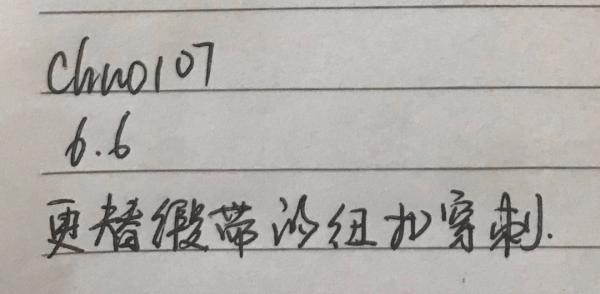 Chuo107
6.6
更替缎带的纽扣穿刺.